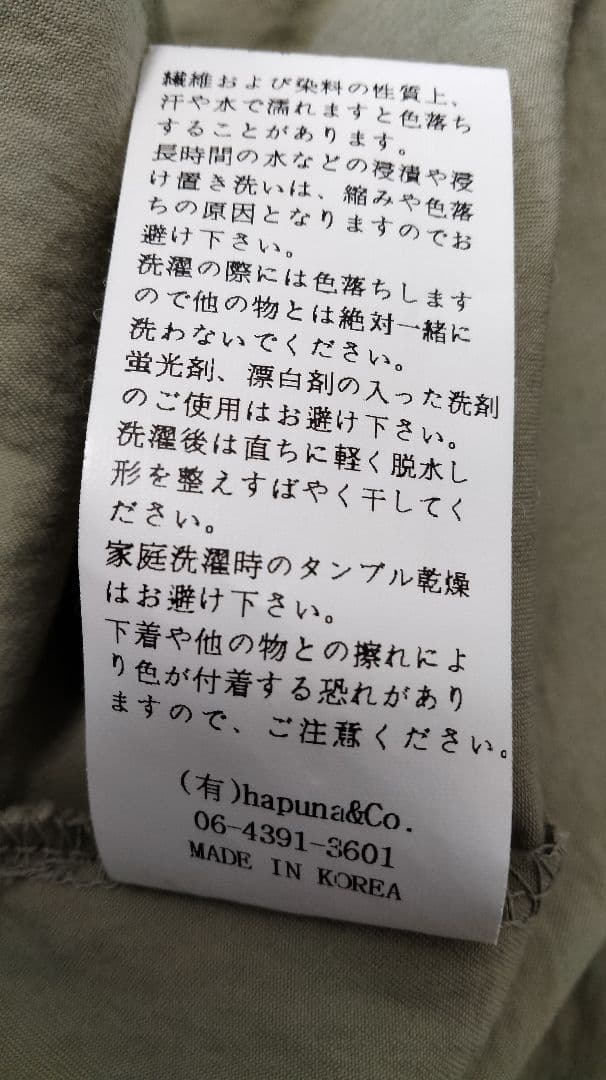 繊維および染料の性質上、
汗や水で濡れますと色落ち
することがあります。
長時間の水などの浸漬や浸
け置き洗いは、縮みや色落
ちの原因となりますのでお
避け下さい。
洗濯の際には色落ちします
ので他の物とは絶対一緒に
洗わないでください。
蛍光剤、漂白剤の入った洗剤
のご使用はお避け下さい。
洗濯後は直ちに軽く脱水し
形を整えすばやく干してく
ださい。
家庭洗濯時のタンブル乾燥
はお避け下さい。
下着や他の物との擦れによ
り色が付着する恐れがあり
ますので、ご注意ください。
(有)hapuna&Co.
06-4391-3601
MADE IN KOREA